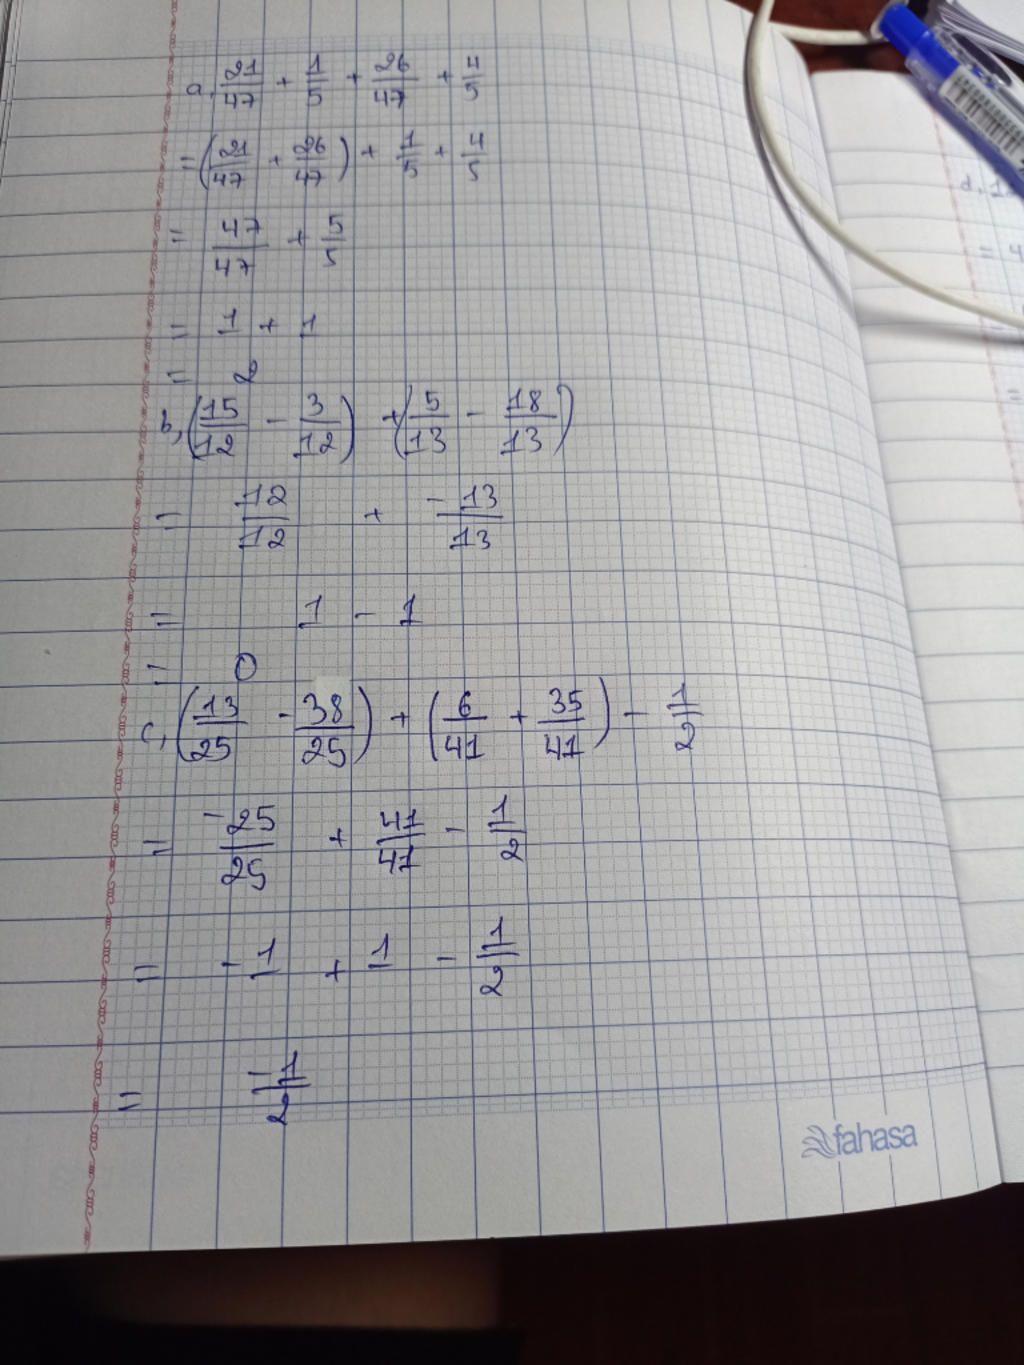 a, 21/47 + 1/5 + 26/47 + 4/5
= (21/47 + 26/47) + 1/5 + 4/5
= 47/47 + 5/5
= 1 + 1
= 2
b, (15/12 - 3/12) + (5/13 - 18/13)
= 12/12 + -13/13
= 1 - 1
= 0
c, (13/25 - 38/25) + (6/41 + 35/41) - 1/2
= -25/25 + 41/41 - 1/2
= -1 + 1 - 1/2
= -1/2
fahasa
d, 1
= 4
=